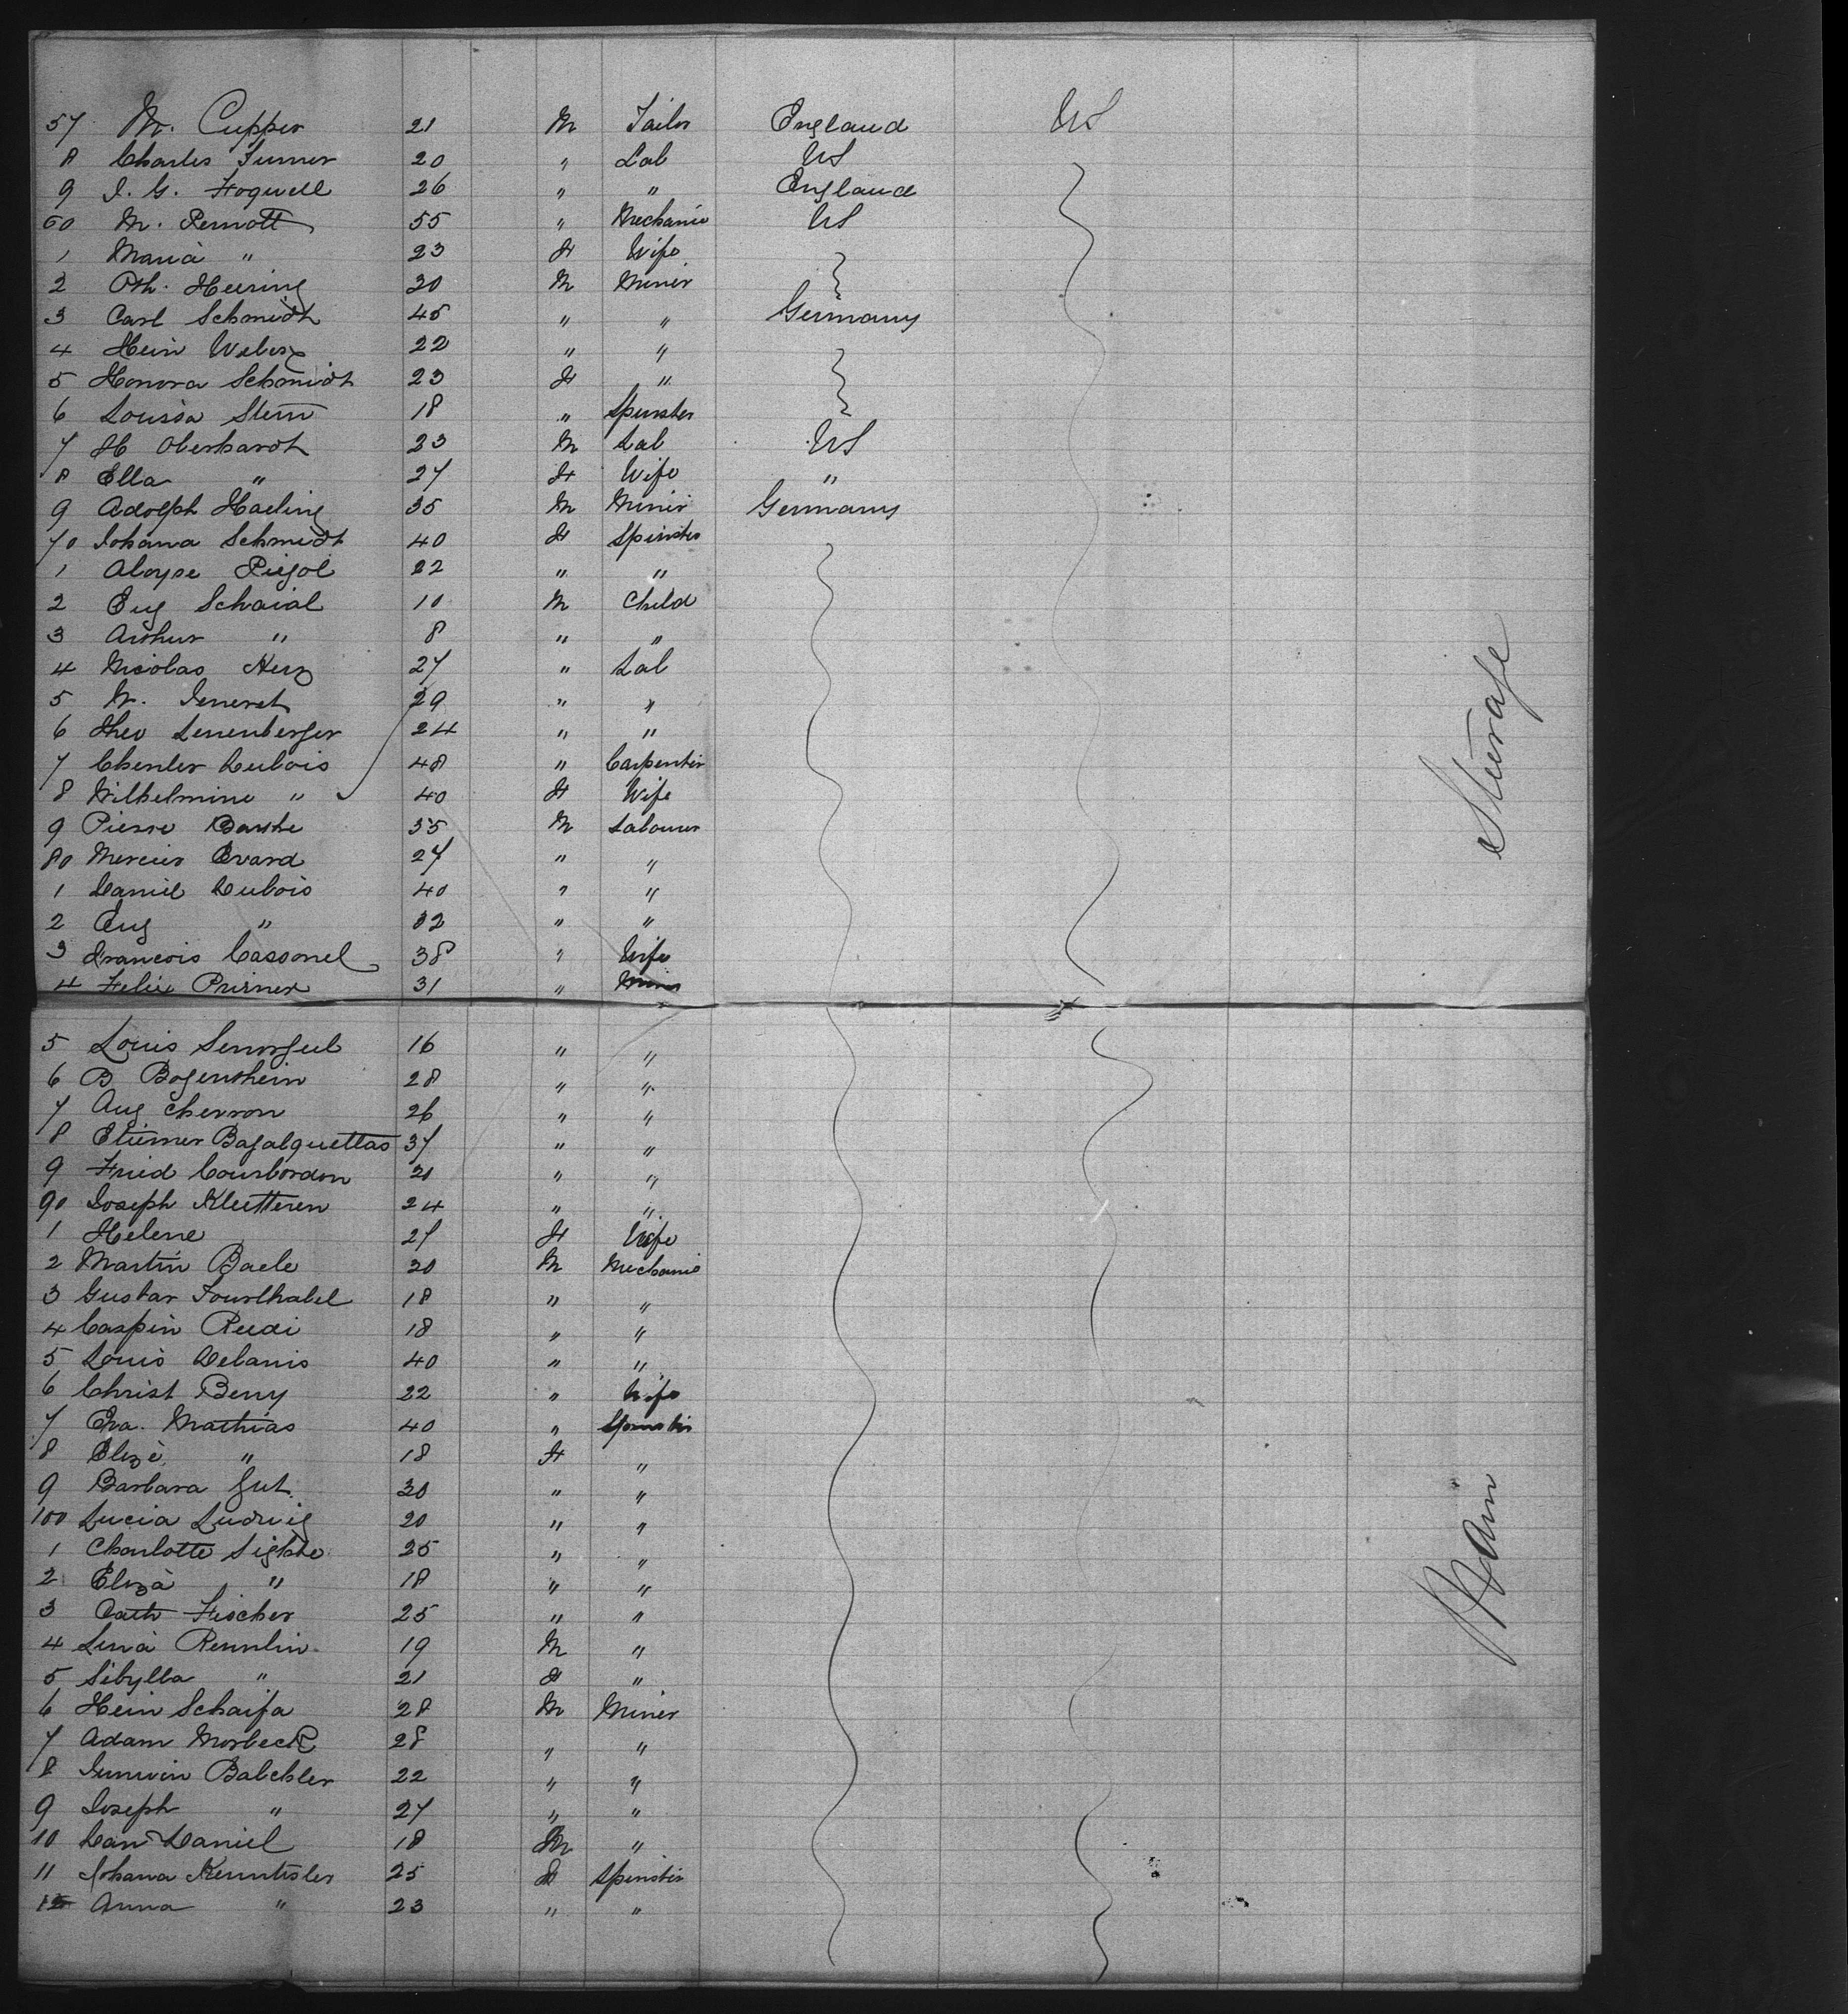 57 M. Cupper 21 M Tailor England US
8 Charles Turner 20 " Lab US
9 I. G. Hogwell 26 " " England
60 M. Pernott 55 " Mechanic US
1 Maria " 23 F Wife
2 Oth. Heering 30 M Miner
3 Carl Schmidt 45 " " Germany
4 Hein Weber 22 " "
5 Honora Schmidt 23 F "
6 Louisa Stern 18 " Spinster
7 H Oberhardt 23 M Lab US
8 Ella " 27 F Wife "
9 Adolph Haeling 35 M Miner Germany
70 Johana Schmidt 40 F Spinster
1 Aloyse Piegol 22 " "
2 Eug Schaial 10 M Child
3 Arthur " 8 " "
4 Nicolas Herz 27 " Lab
5 M. Generet 29 " "
6 Theo Lenenberger 24 " "
7 Charles Dubois 48 " Carpenter
8 Wilhelmine " 40 F Wife
9 Pierre Barthe 35 M Labourer
80 Mercier Evard 27 " "
1 Daniel Dubois 40 " "
2 Eug " 32 " "
3 Francois Cassonel 38 " Wife
4 Felix Prisner 31 " Miner
5 Louis 16 " "
6 B Bogenshein 28 " "
7 Aug Cherron 26 " "
8 Etienner Bagalquettas 37 " "
9 Fried Courbordon 20 " "
90 Joseph Kleutteren 24 " "
1 Helene 27 F Wife
2 Martin Baele 30 M Mechanic
3 Gustav Fourlhabel 18 " "
4 Caspin Ruedi 18 " "
5 Louis Delanis 40 " "
6 Christ Beny 22 " Wife
7 Eva Mathias 40 " Spinster
8 Elize " 18 F "
9 Barbara Gut 30 " "
100 Lucia Ludwig 20 " "
1 Charlotte 25 " "
2 Eliza " 18 " "
3 Cath Fischer 25 " "
4 Lina Remlin 19 M "
5 Sibylla " 21 F "
6 Hein Schaifa 28 M Miner
7 Adam Morbeck 28 " "
8 Balchler 22 " "
9 Joseph " 27 " "
10 Dan Daniel 18 M "
11 Johana 25 F Spinster
12 Anna " 23 " "
Steerage
Main